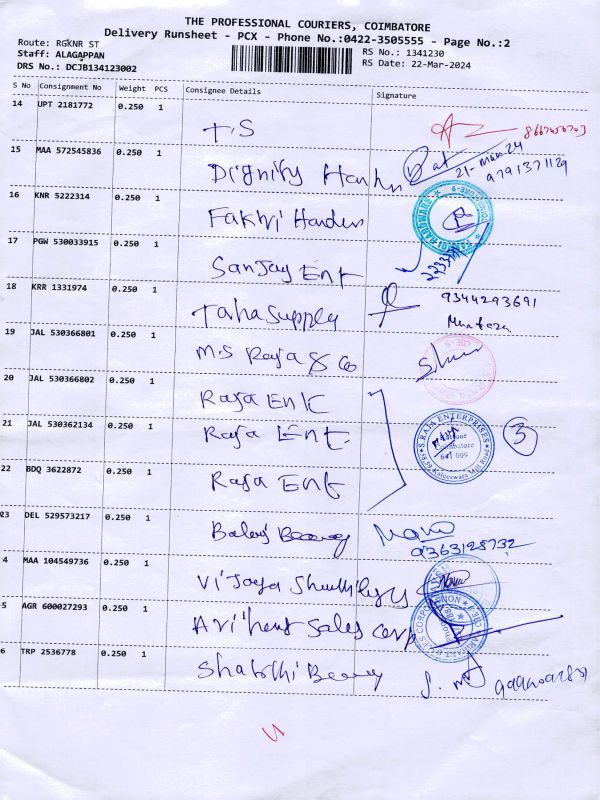 THE PROFESSIONAL COURIERS, COIMBATORE
Delivery Runsheet - PCX - Phone No.:0422-3505555 - Page No.:2
Route: RGKNR ST
Staff: ALAGAPPAN
DRS No.: DCJB134123002
RS No.: 1341230
RS Date: 22-Mar-2024
S No Consignment No Weight PCS Consignee Details Signature
14 UPT 2181772 0.250 1
T.S
15 MAA 572545836 0.250 1
Dignity 21-Mar-24
9791371129
16 KNR 5222314 0.250 1
Fakhri
17 PGW 530033915 0.250 1
Sanjay Ent
18 KRR 1331974 0.250 1
Taha Supply 9344293691
Murtaza
19 JAL 530366801 0.250 1
M.S Raja & Co
20 JAL 530366802 0.250 1
Raja Ent
21 JAL 530362134 0.250 1
Raja Ent. S.RAJA ENTERPRISES 3
Coimbatore
641 009
22 BDQ 3622872 0.250 1
Raja Ent
23 DEL 529573217 0.250 1
Balaji
9363128732
4 MAA 104549736 0.250 1
Vijaya
5 AGR 600027293 0.250 1
Arihant Sales Corp
6 TRP 2536778 0.250 1